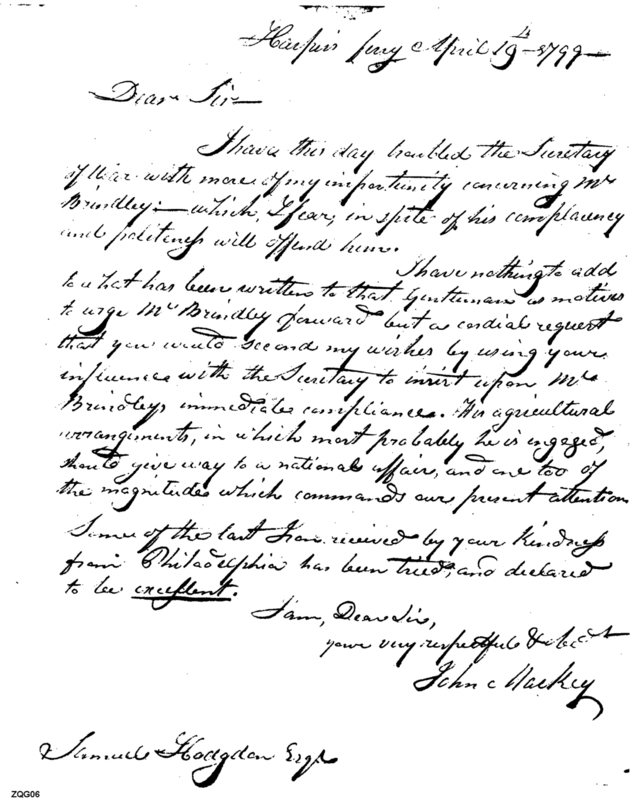 Harpers ferry April 19th 1799
Dear Sir
I have this day troubled the Secretary
of War with more of my importunity concerning Mr
Brindley:— which, I fear, in spite of his complacency
and politeness will offend him.
I have nothing to add
to what has been written to that Gentleman as motives
to urge Mr Brindley forward but a cordial request
that you would second my wishes by using your
influence with the Secretary to insist upon Mr
Brindleys immediate compliance. His agricultural
arrangements, in which most probably he is ingaged,
should give way to a national affair, and one too of
the magnitude which commands our present attention
Some of the last Iron received by your kindness
from Philadelphia has been tried, and declared
to be excellent.
I am, Dear Sir,
your very respectful & obedt
John Mackey
Samuel Hodgdon Esqr
ZQG06